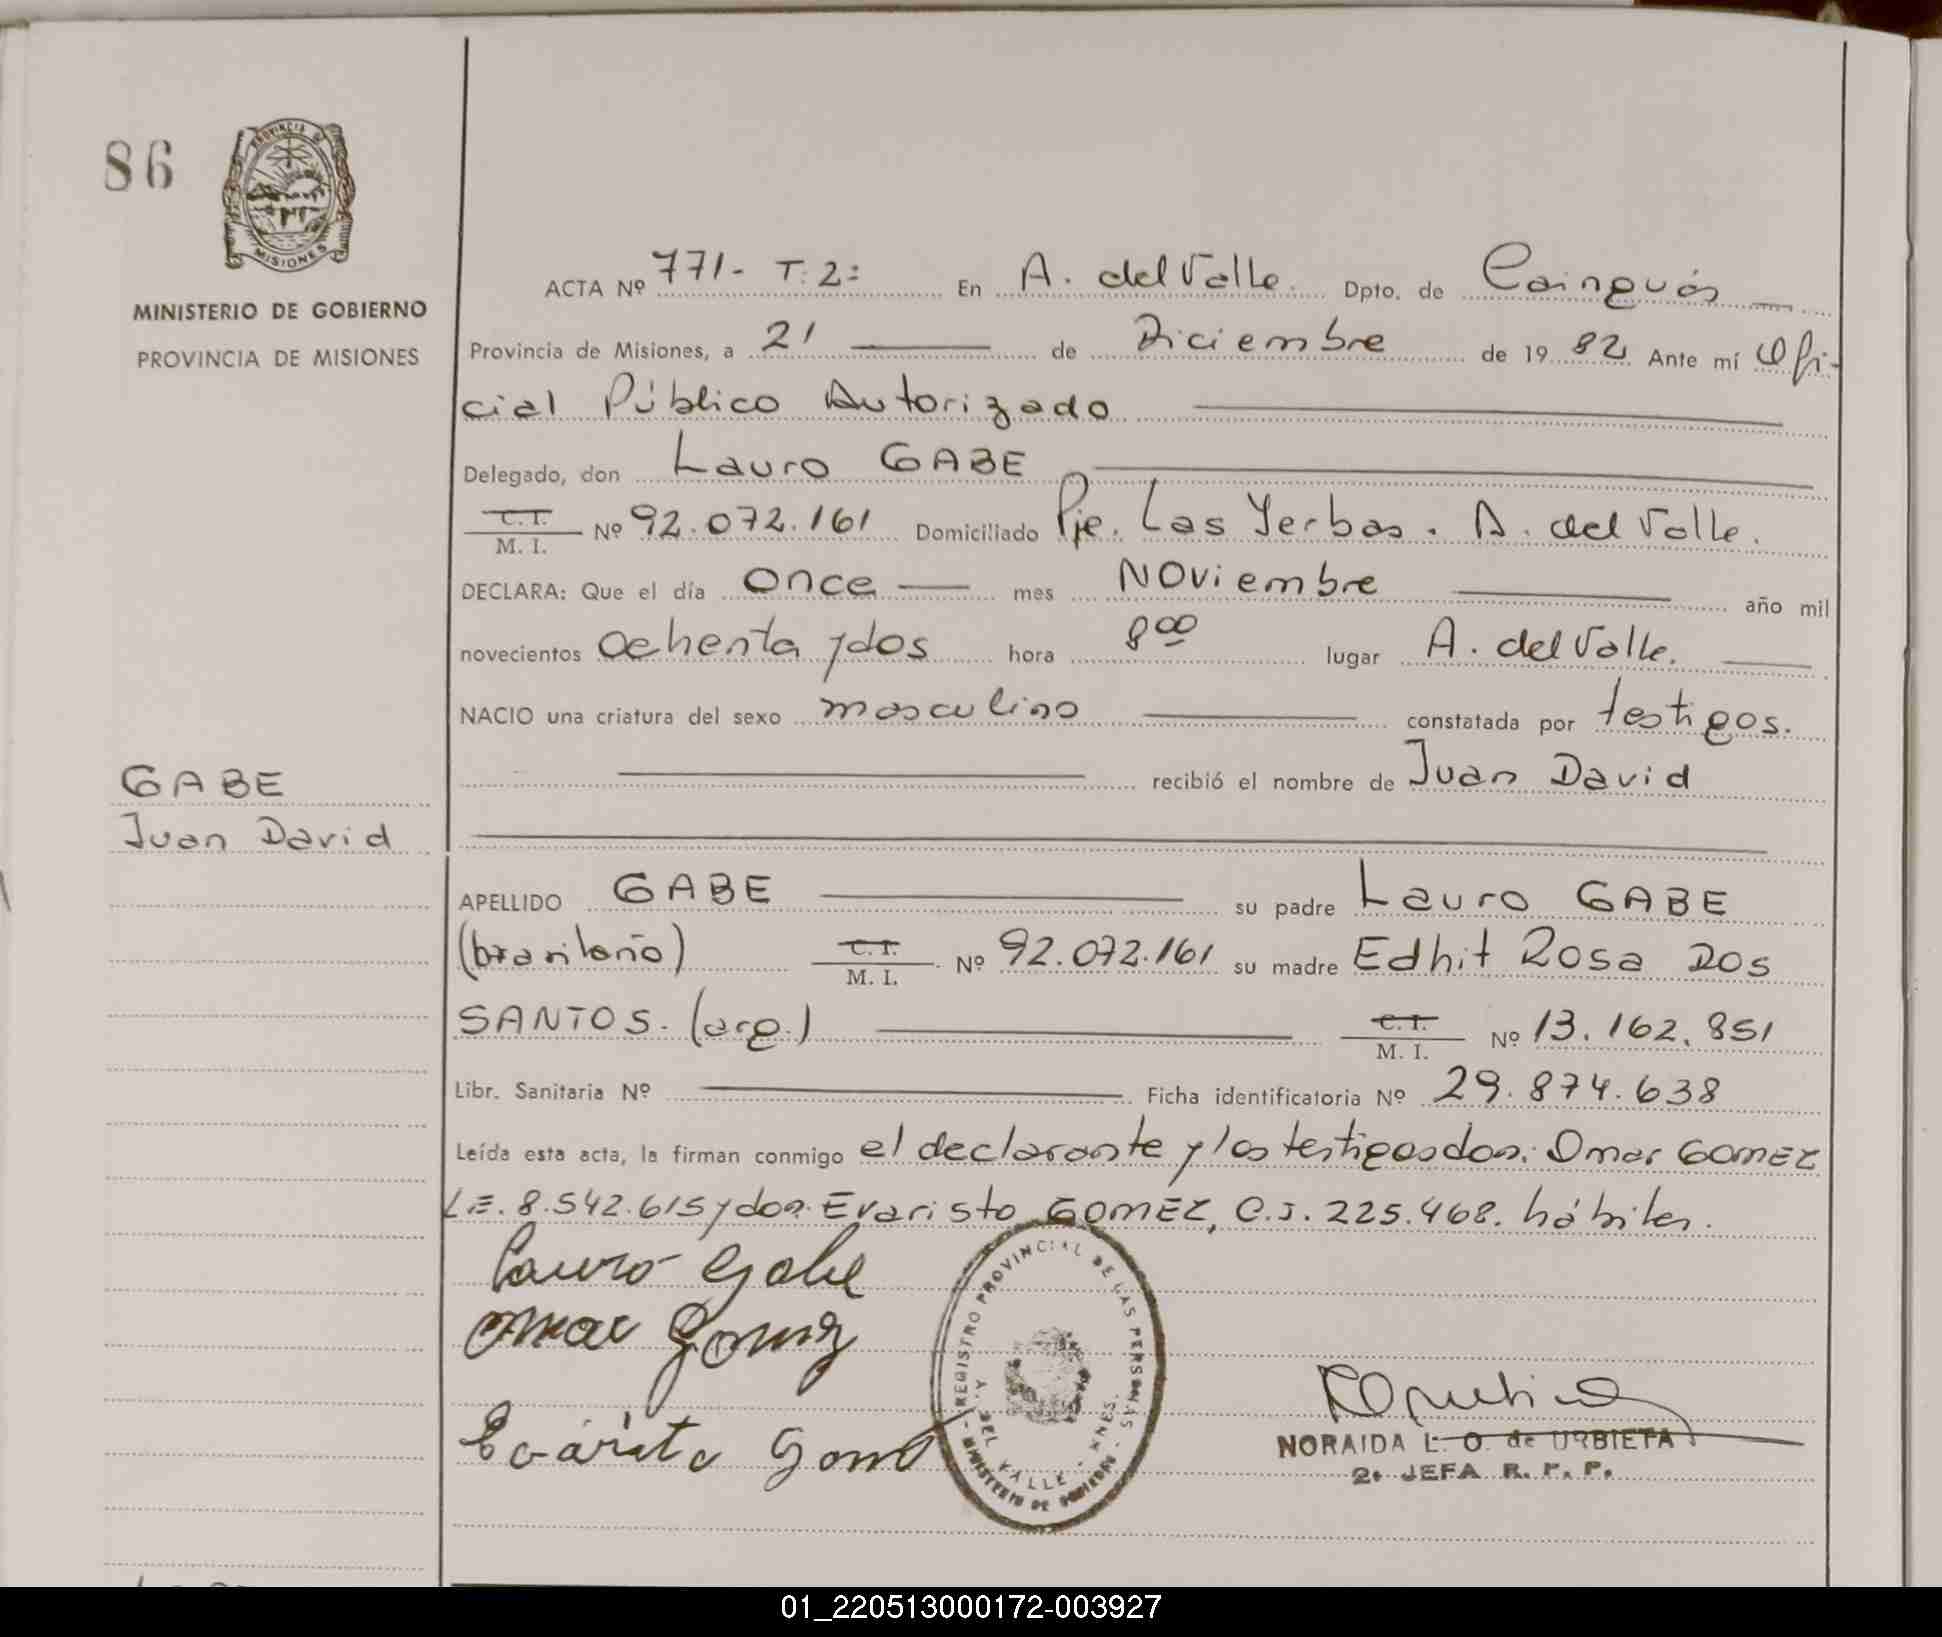 86
PROVINCIA DE
MISIONES
MINISTERIO DE GOBIERNO
PROVINCIA DE MISIONES
ACTA Nº 771- T: 2: En A. del Valle. Dpto. de Cainguás
Provincia de Misiones, a 21 de Diciembre de 19 82 Ante mí Ofi-
cial Público Autorizado
Delegado, don Lauro GABE
C. I.
M. I. Nº 92.072.161 Domiciliado Pje. Las Yerbas. A. del Valle.
DECLARA: Que el día once mes NOviembre año mil
novecientos ochenta y dos hora 8 00 lugar A. del Valle.
NACIO una criatura del sexo masculino constatada por testigos.
recibió el nombre de Juan David
GABE
Juan David
APELLIDO GABE su padre Lauro GABE
(brasileño) C. I.
M. I. Nº 92.072.161 su madre Edhit Rosa DOS
SANTOS. (arg.) C. I.
M. I. Nº 13.162.851
Libr. Sanitaria Nº Ficha identificatoria Nº 29.874.638
Leída esta acta, la firman conmigo el declarante y los testigos don: Omar GOMEZ
LE. 8.542.615 y don Evaristo GOMEZ, C.I. 225.468. hábiles.
Lauro Gabe
Omar Gomez
REGISTRO PROVINCIAL DE LAS PERSONAS
DEL VALLE - MNES.
MINISTERIO DE GOBIERNO
NORAIDA L. O. de URBIETA
2ª JEFA R. P. P.
01_220513000172-003927